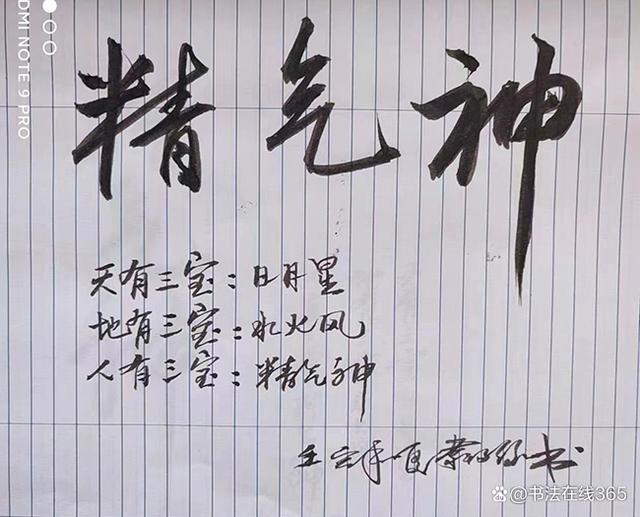 精气神
天有三宝：日月星
地有三宝：水火风
人有三宝：精气神
书
DMI NOTE 9 PRO
@书法在线365